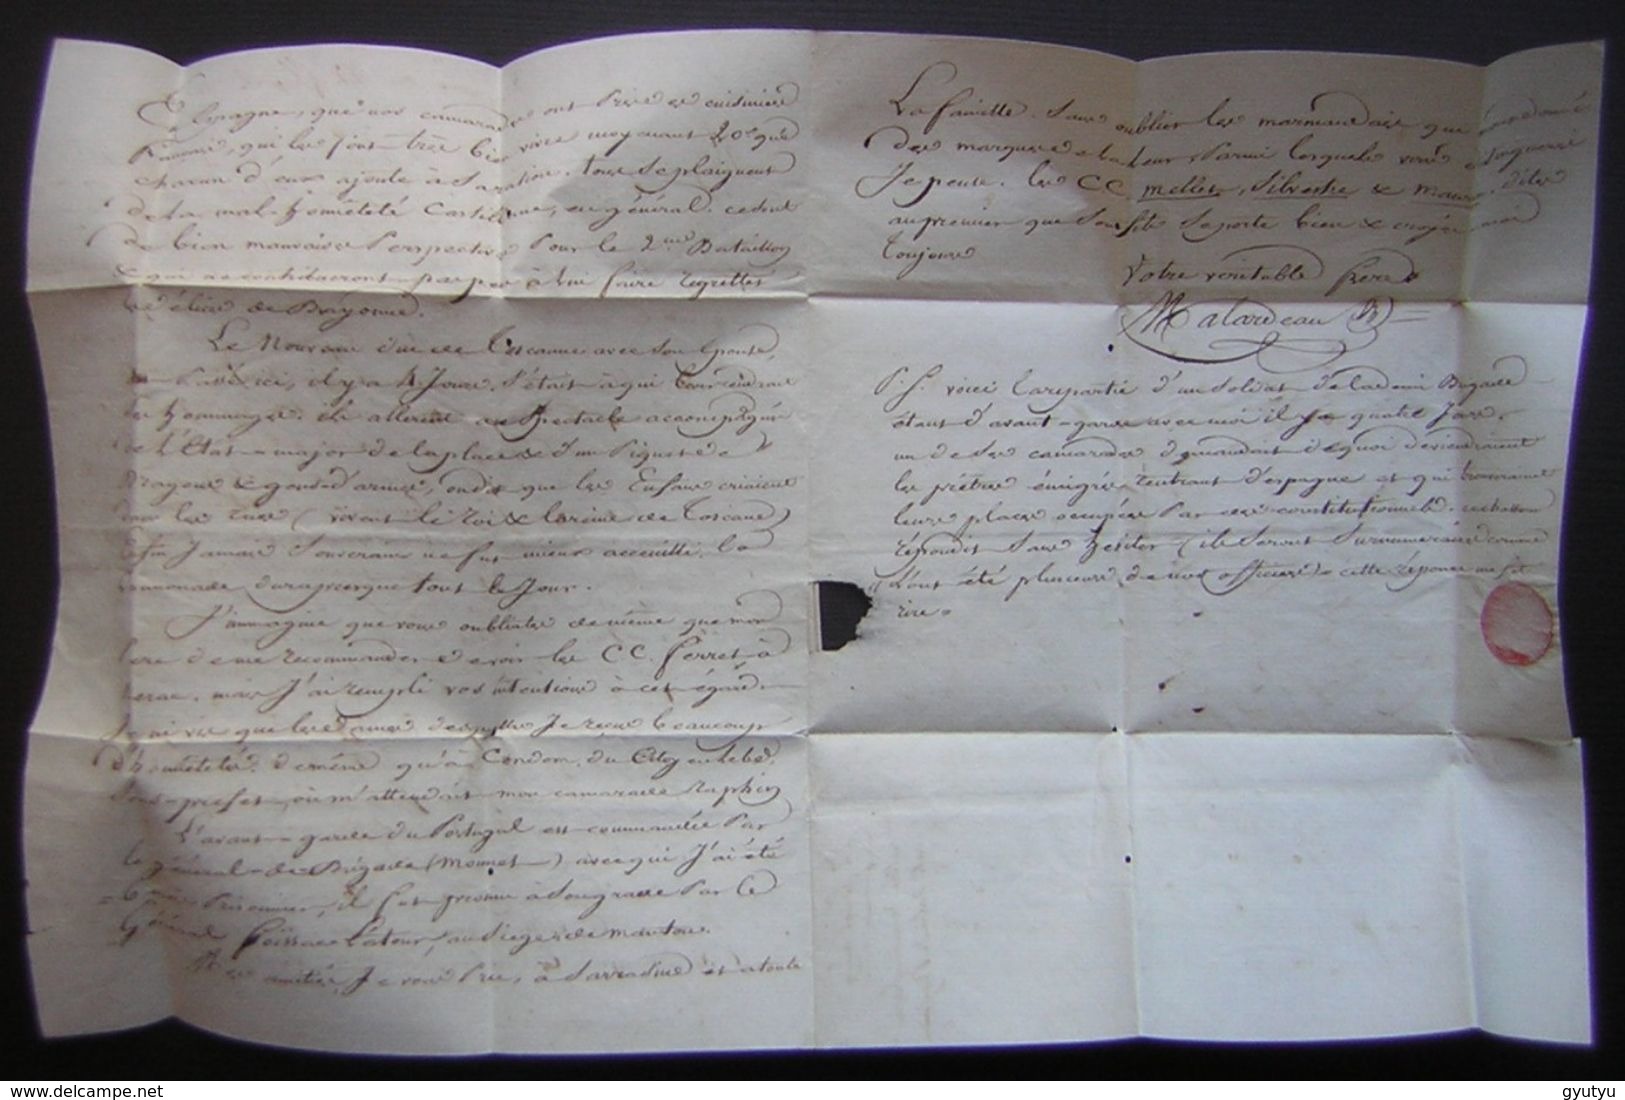 Espagne, que nos camarades ont Prise de cuisiniere
qui les font très bien vivre moyenant 20s que
chacun d'eux ajoute à sa ration. tous se plaignent
de la mal-honnêteté Castillane, en général. ce sont
de bien mauvaises Perspectives Pour le 2me Bataillon
& qui ne contribueront pas peu à lui faire regretter
les délices de Bayonne.
Le Nouveau duc de Toscanne avec son Epouse,
Passé ici, il y a 4 Jours. C'était à qui leur rendrait
des hommages. ils allerent au Spectacle accompagnés
de l'Etat-major de la place & d'un Piquet de
dragons & gens d'armes, on dit que les Enfans criaient
dans les rues (vivent le roi & la reine de Toscane)
enfin Jamais Souverain ne fut mieux accueilli. la
cannonade dura presque tout le Jour.
J'immagine que vous oubliates de même que mon
frere de me recommander de voir les C C. Ferret à
nerac. mais J'ai rempli vos intentions à cet égard.
Je ai vu que les Je reçus beaucoup
d'honnêtetés. de même qu'à Condom, du Citoyen Lebé,
Sous-prefet, où m'attendait mon camarade raphin
L'avant-garde du Portugal est commandée Par
le général-de Brigade (Monnet) avec qui J'ai été
Prisonnier, il fut promu à son grade Par le
Général Foissac Latour, au Siege de Mantoue.
Mes amitiés, Je vous Prie, à Sarradine et à toute
La famille. Sans oublier les marmandais que
des marques de la leur Parmi lesquels vous
Je pense. les C C. melles, Silvestre & dites
au premier que son fils se porte bien & croyés moi
Toujours
Votre véritable frere
Malardeau
P.S. voici la repartie d'un soldat de la demi Brigade
étant d'avant-garde avec moi il y a quatre Jours.
un de ses camarades demandait de quoi deviendraient
les prêtres émigrés rentrant d'espagne et qui trouveraient
leurs places occupées Par des constitutionnels.
répondit Sans hesiter (ils seront Surnumeraires comme
l'ont été plusieurs de nos officiers) cette réponse me fit
rire.
gyutyu